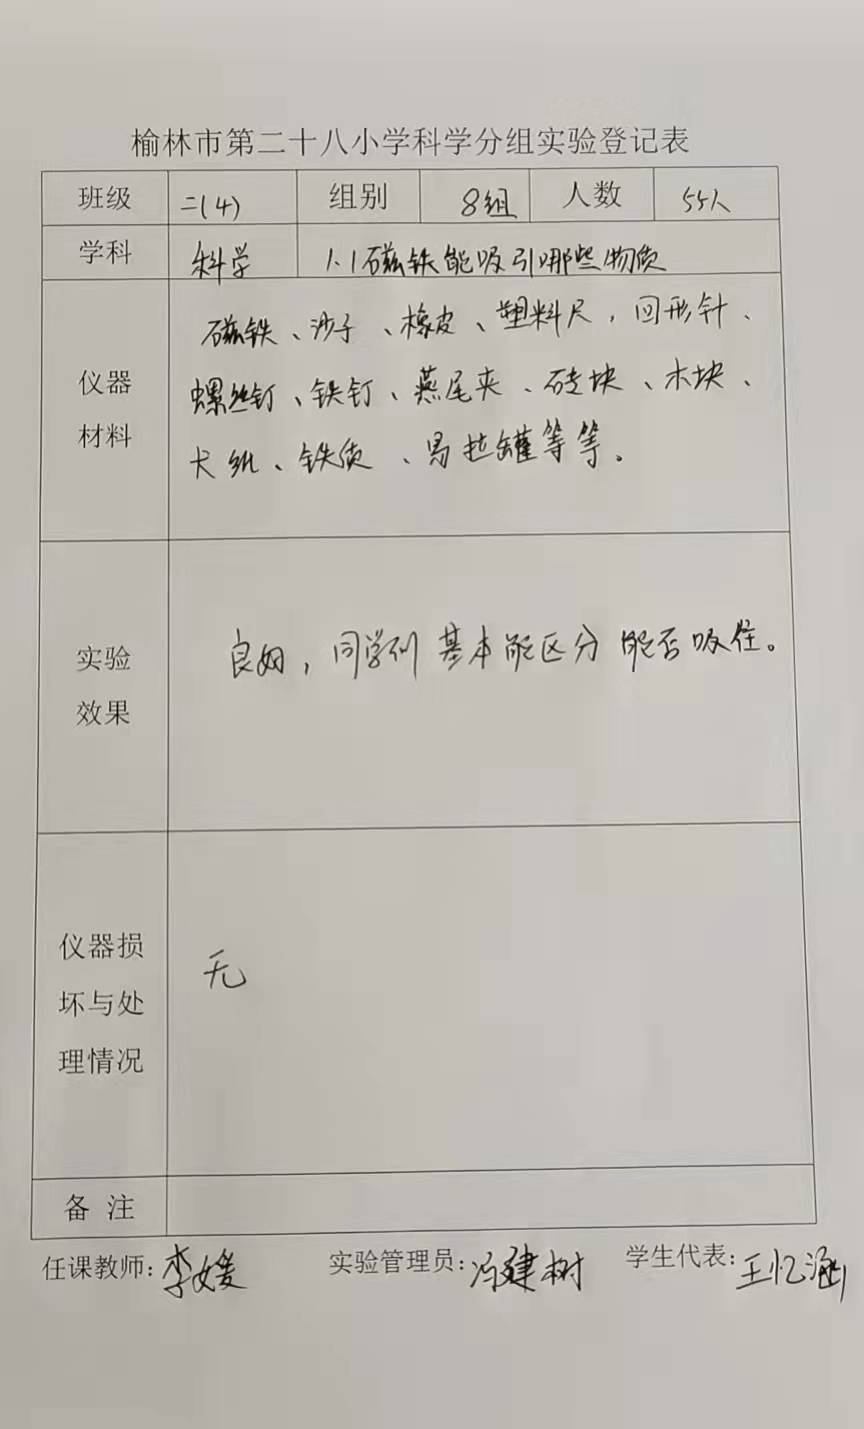 榆林市第二十八小学科学分组实验登记表
班级 二(4) 组别 8组 人数 55人
学科 科学 1.1磁铁能吸引哪些物质
仪器材料
磁铁、沙子、橡皮、塑料尺，回形针、
螺丝钉、铁钉、燕尾夹、砖块、木块、
卡纸、铁质、易拉罐等等。
实验效果
良好，同学们基本能区分能否吸住。
仪器损坏与处理情况
无
备注
任课教师：李媛 实验管理员：冯建树 学生代表：王忆涵